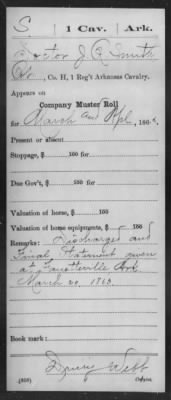 S. 1 Cav. Ark.
Doctor J. C. Smith
Pvt., Co. H, 1 Reg't Arkansas Cavalry.
Appears on
Company Muster Roll
for March and Apl, 186
Present or absent
Stoppage, $ 100 for
Due Gov't, $ 100 for
Valuation of horse, $ 100
Valuation of horse equipments, $ 100
Remarks: Discharged and
final statement given
at Fayetteville Ark
March 20. 1863.
Book mark:
Drury Webb
(858) Copyist.